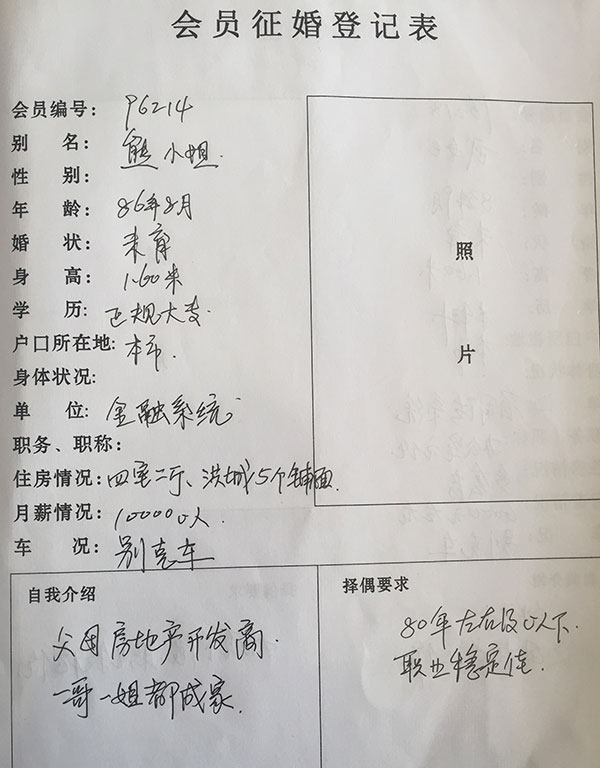 会员征婚登记表
会员编号: P6214
别 名: 熊小姐.
性 别:
年 龄: 86年8月
婚 状: 未育
身 高: 1.60米
学 历: 正规大专
户口所在地: 本市.
身体状况:
单 位: 金融系统
职务、职称:
住房情况: 四室二厅、洪城5个铺面.
月薪情况: 10000以
车 况: 别克车
照
片
自我介绍
父母房地产开发商
一哥一姐都成家.
择偶要求
80年左右及以下.
职业稳定佳.